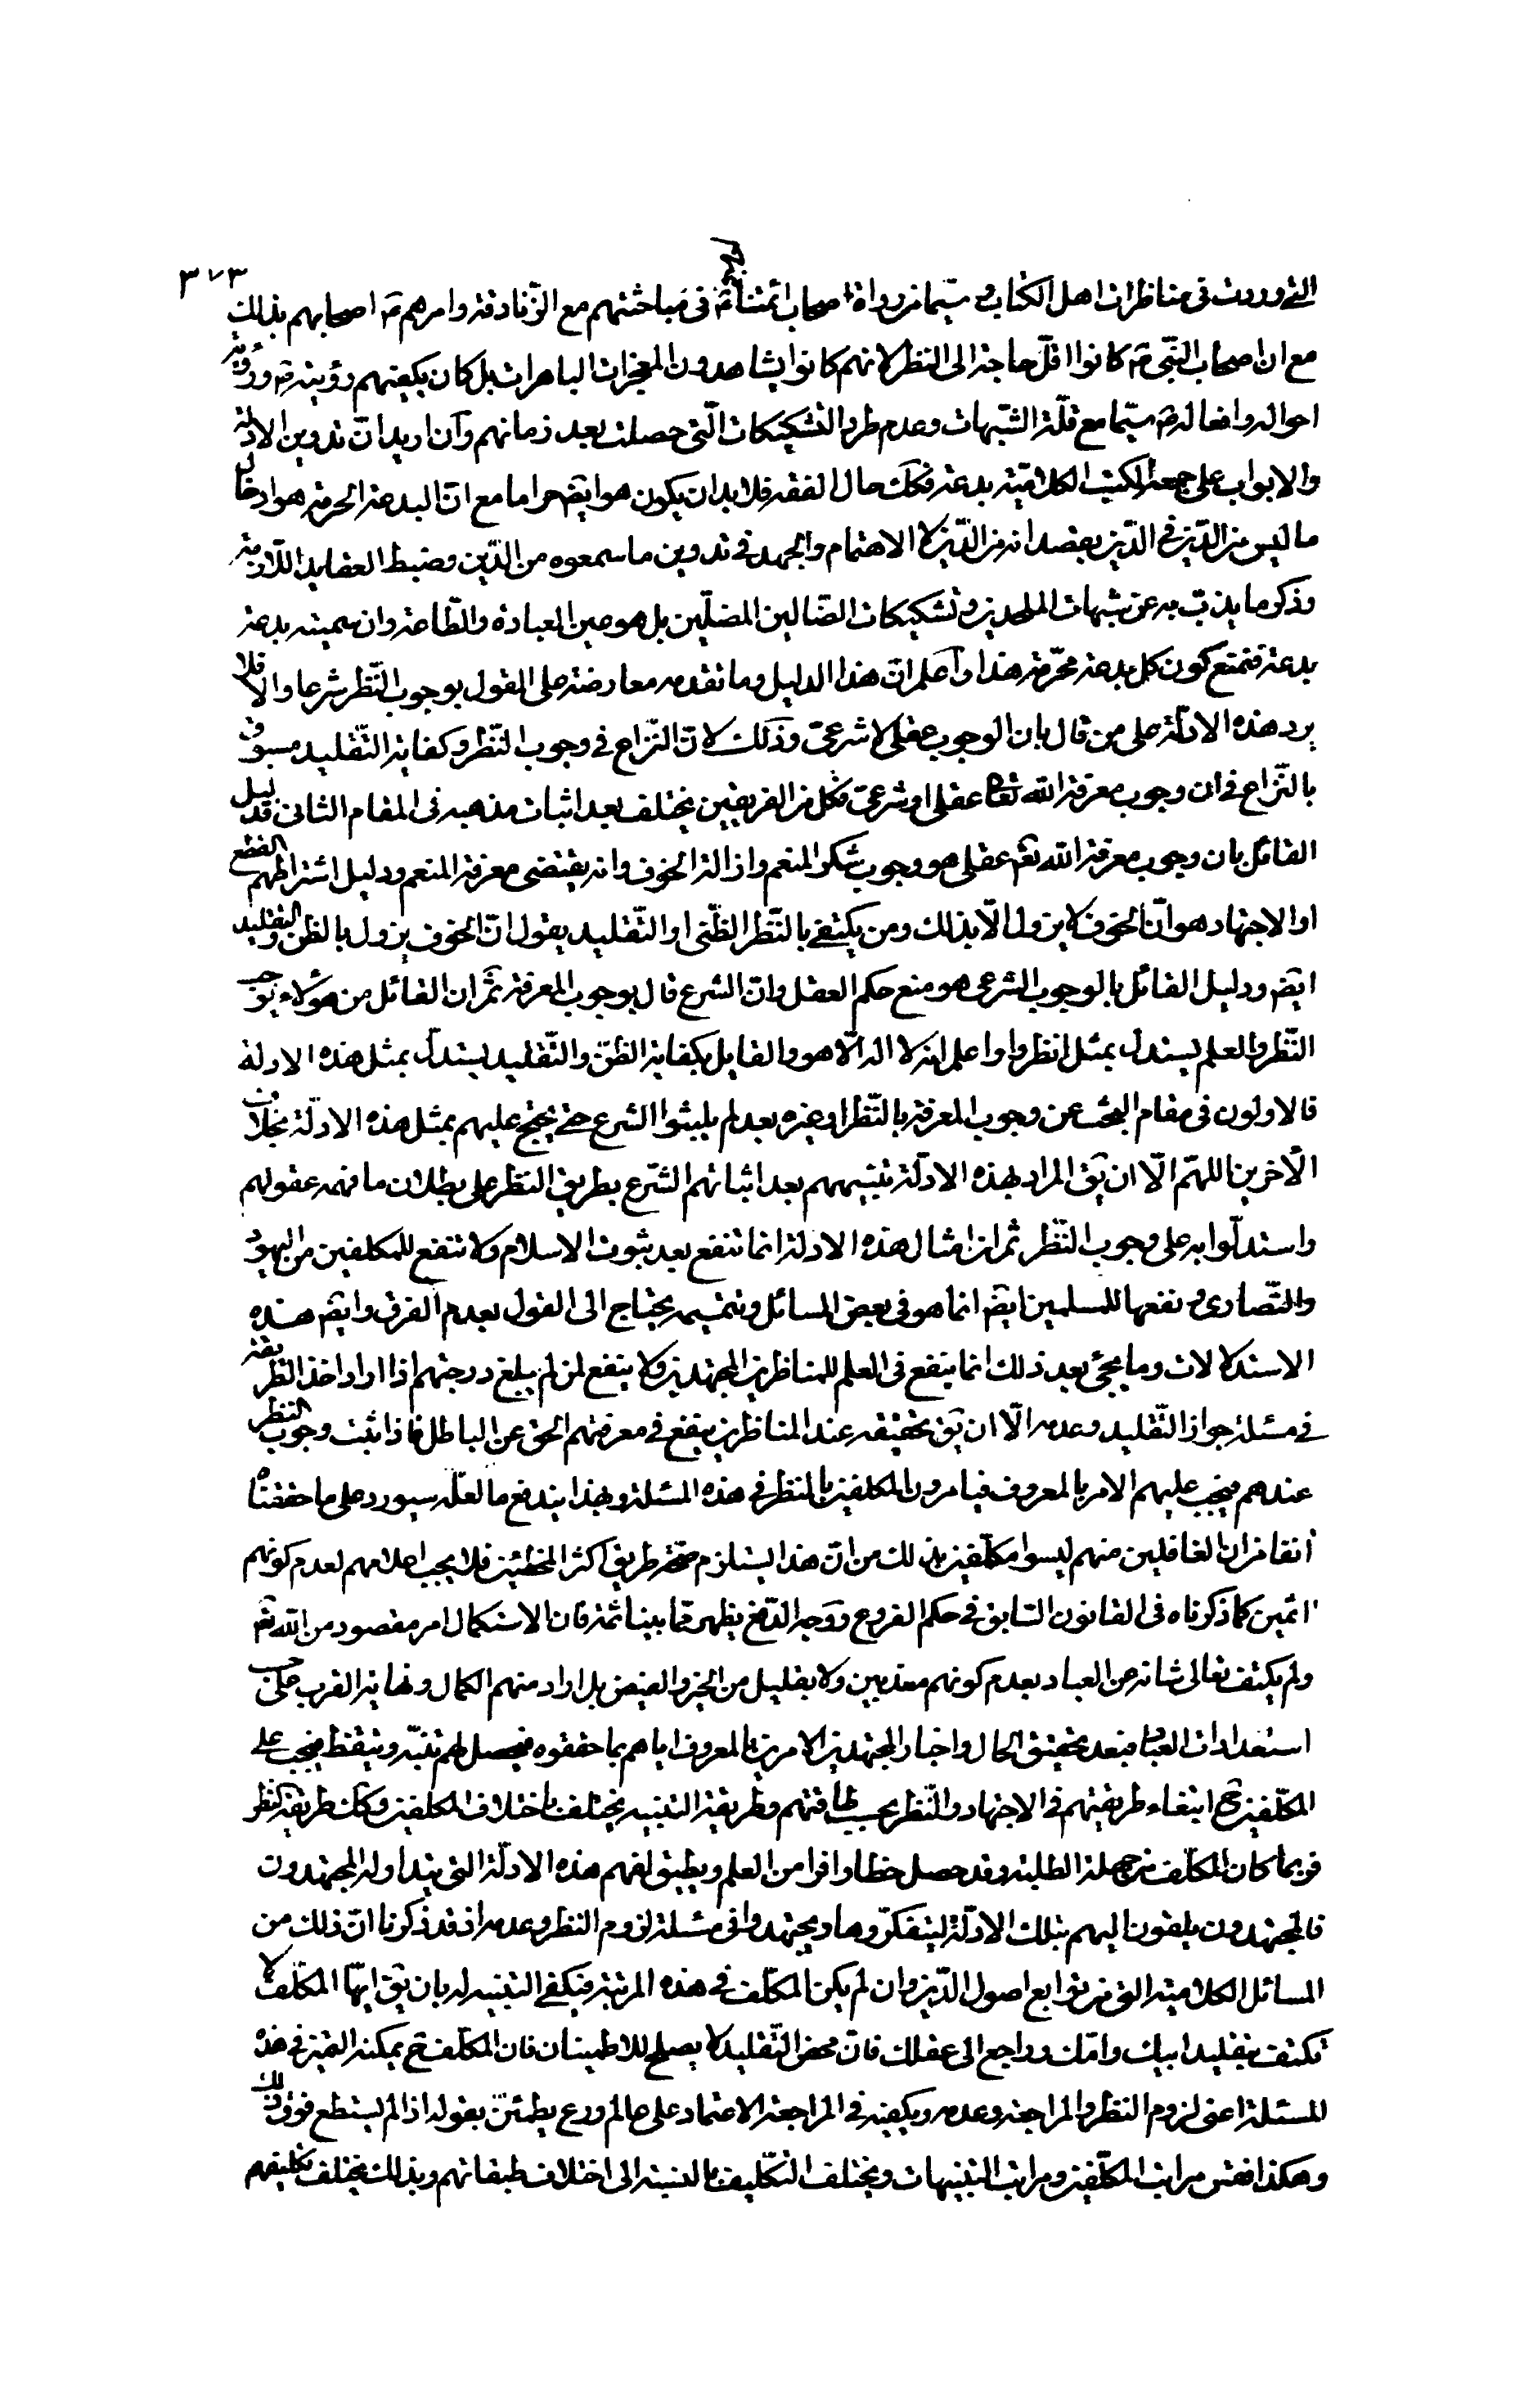 ٣٧٣
التي وردت في مناظرات اهل الكتاب و سيّما من رواة اصحاب ائمتنا في مباحثتهم مع الزّنادقة وامرهم اصحابهم بذلك
مع ان اصحاب النّبي ص كانوا اقلّ حاجة الى النظر لانهم كانوا يشاهدون المعجزات الباهرات بل كان يكفيهم رؤيته ص ورؤية
احواله وافعاله ص سيّما مع قلّة الشّبهات وعدم طرو التشكيكات الّتي حصلت بعد زمانهم وان اريد انّ تدوين الادلة
والابواب على جمعة الكتب الكلاميّة بدعة فكك حال الفقه فلا بد ان يكون هو ايضم حراما مع انّ البدعة المحرمة هو ادخال
ما ليس من الدّين في الدّين بقصد انه من الدّين لا الاهتمام والجهد في تدوين ما سمعوه من الدّين وضبط العقايد اللّازمة
وذكر ما يذبّ به عن شبهات الملحدين وتشكيكات الضّالين المضلّين بل هو عين العبادة والطّاعة وان سميته بدعة
بدعة فنمنع كون كل بدعة محرّمة هذا واعلم انّ هذا الدليل وما تقدمه معارضة على القول بوجوب النّظر شرعا والا فلا
يرد هذه الادلّة على من قال بان الوجوب عقلي لا شرعيّ وذلك لانّ النّزاع في وجوب النّظر وكفاية التّقليد مسبوق
بالنّزاع في ان وجوب معرفة الله تعا عقلي او شرعيّ فكل من الفريقين يختلف بعد اثبات مذهبه في المقام الثاني فدليل
القائل بان وجوب معرفة الله تعم عقلي هو وجوب شكر المنعم وازالة الخوف وانه يقتضي معرفة المنعم ودليل اشتراطهم القطع
او الاجتهاد هو انّ الخوف لا يزول الّا بذلك ومن يكتفي بالنّظر الظّني او التّقليد يقول انّ الخوف يزول بالظن والتقليد
ايضم ودليل القائل بالوجوب الشرعي هو منع حكم العقل وانّ الشرع قال بوجوب المعرفة ثمّ ان القائل من هؤلاء بوجوب
النّظر والعلم يستدل بمثل انظروا واعلم انه لا اله الّا هو والقايل بكفاية الظنّ والتّقليد يستدلّ بمثل هذه الادلة
فالاولون في مقام البحث عن وجوب المعرفة بالنّظر او غيره بعد لم يثبتوا الشرع حتى يحتج عليهم بمثل هذه الادلّة بخلاف
الاخرين اللهمّ الّا ان يق المراد بهذه الادلّة تنبيههم بعد اثباتهم الشّرع بطريق النظر على بطلان ما فهمه عقولهم
واستدلّوا به على وجوب النّظر ثم ان امثال هذه الادلة انما تنفع بعد ثبوت الاسلام ولا تنفع للمكلفين من اليهود
والنّصارى و نفعها للمسلمين ايضم انما هو في بعض المسائل وتتميمه يحتاج الى القول بعدم الفرق وايضم هذه
الاستدلالات وما يجئ بعد ذلك انما ينفع في العلم للمناظرين المجتهدين ولا ينفع لمن لم يبلغ درجتهم اذا اراد اخذ الطريقة
في مسئلة جواز التّقليد وعدمه الّا ان يق تحقيقه عند المناظرين ينفع في معرفتهم الحق عن الباطل فاذا ثبت وجوب النظر
عندهم فيجب عليهم الامر بالمعروف فيامرون المكلفين بالنظر في هذه المسئلة وبهذا يندفع ما لعلّه سيورد على ما حققناه
انفا من ان الغافلين منهم ليسوا مكلّفين بذلك من انّ هذا يستلزم صحّة طريق اكثر المخطئين فلا يجب اعلامهم لعدم كونهم
اثمين كما ذكرناه في القانون السّابق في حكم الفروع ووجه الدّفع يظهر ممّا بينا ثمة فان الاستكمال امر مقصود من الله تعم
ولم يكتف تعالى شانه عن العباد بعدم كونهم معذبين ولا بقليل من الخير والفيض بل اراد منهم الكمال ونهاية القرب على حسب
استعدادات العبٌا فبعد تحقيق الحال واخبار المجتهدين الامرين بالمعروف اياهم بما حققوه فيحصل لهم تنبّه وتيقظ فيجب على
المكلّفين ح ابتغاء طريقتهم في الاجتهاد والنّظر بحسب طاقتهم وطريقة التنبيه يختلف باختلاف المكلفين وكك طريقة النظر
فربما كان المكلّف من جملة الطلبة وقد حصل حظا وافرا من العلم ويطيق لفهم هذه الادلّة التي يتداوله المجتهدون
فالمجتهدون يلقون اليهم بتلك الادلّة ليتفكرّوها ويجتهدوا في مسئلة لزوم النظر وعدمه اذ قد ذكرنا انّ ذلك من
المسائل الكلامية التي من توابع اصول الدّين وان لم يكن المكلّف في هذه المرتبة فيكفي التنبيه له بان يق ايّها المكلّف لا
تكتف بتقليد ابيك وامّك وراجع الى عقلك فانّ محض التّقليد لا يصلح للاطمينان فان المكلّف ح يمكنه التميز في هذه
المسئلة اعني لزوم النظر والمراجعة وعدمه ويكفيه في المراجعة الاعتماد على عالم ورع يطمئنّ بقوله اذا لم يستطع فوق ذلك
وهكذا فقس مراتب المكلّفين ومراتب التنبيهات ويختلف التكّليف بالنسبة الى اختلاف طبقاتهم وبذلك يختلف تكليفهم